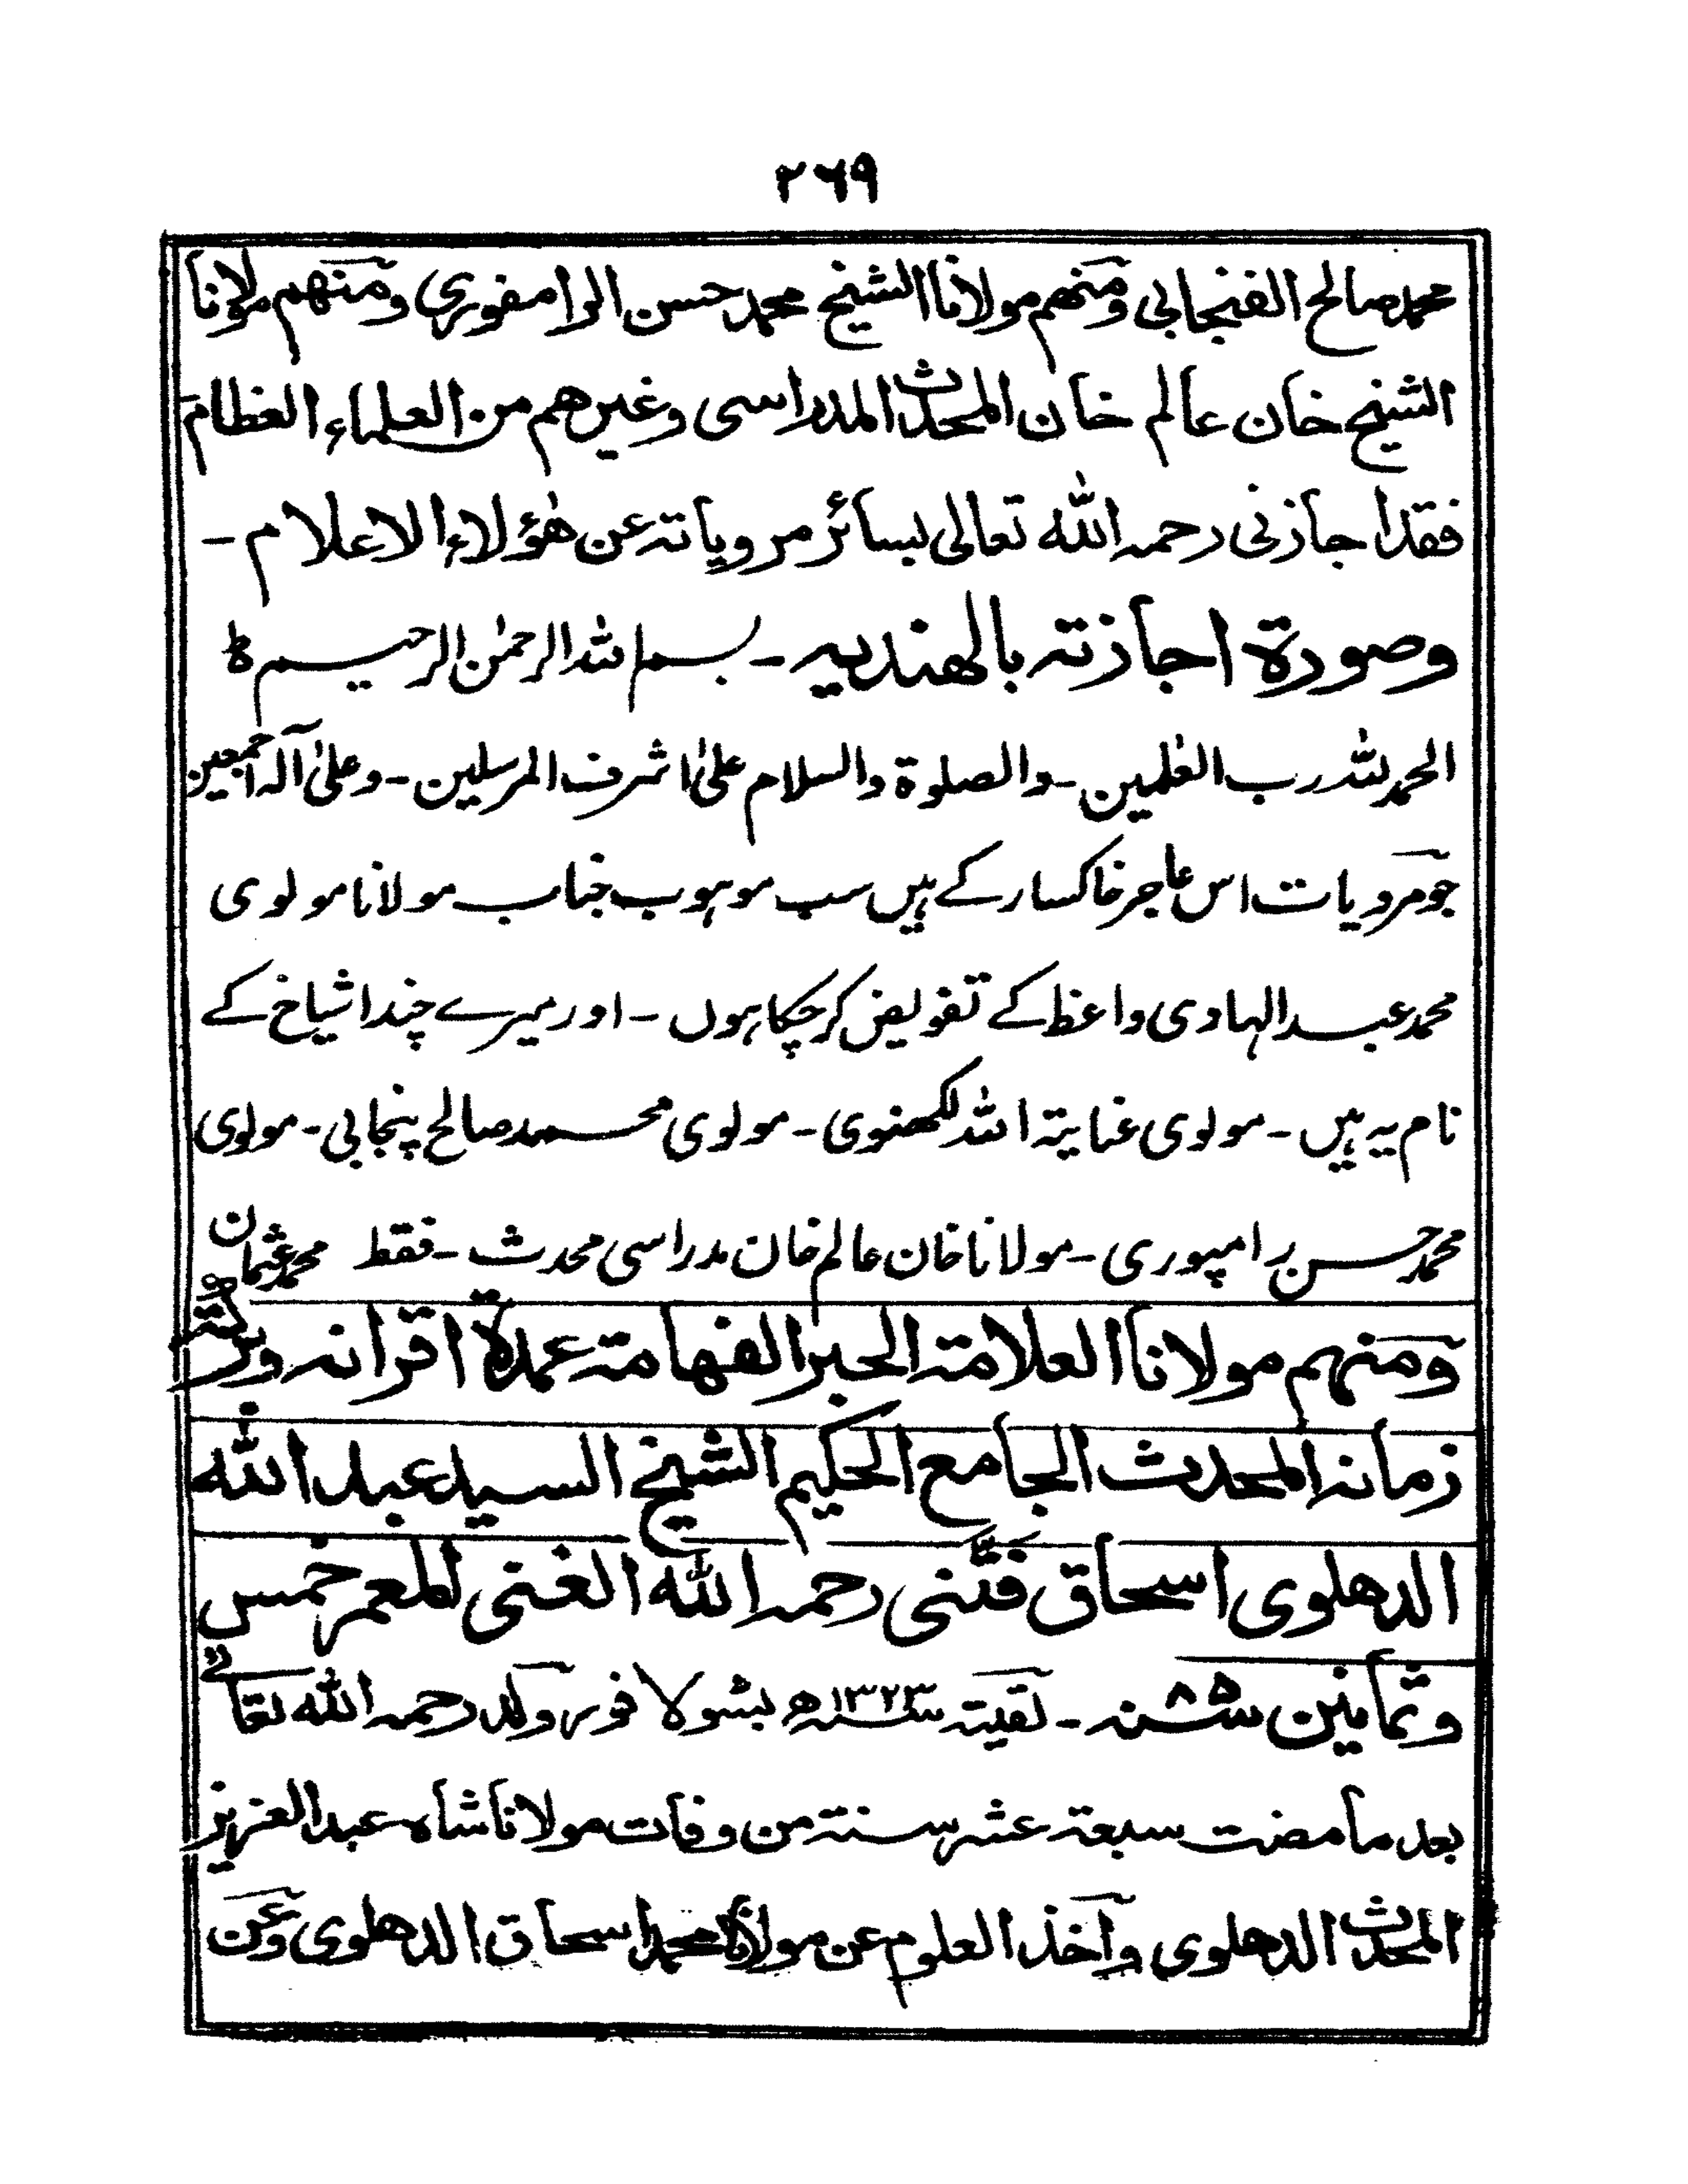 ۲۶۹
محمد صالح الفنجابی ومنهم مولانا الشیخ محمد حسن الرامفوری ومنهم مولانا
الشیخ خان عالم خان المحدث المدراسی وغیرهم من العلماء العظام
فقد اجازنی رحمہ الله تعالی بسائر مرویاتہ عن هٰؤلاء الاعلام -
وصورة اجازتہ بالهندیہ - بسم اللہ الرحمٰن الرحیم ط
الحمد للہ رب العٰلمین - والصلوة والسلام علیٰ اشرف المرسلین - وعلیٰ آلہ اجمعین
جو مرویات اس عاجز خاکسار کے ہیں سب موہوب جناب مولانا مولوی
محمد عبد الہادی واعظ کے تفویض کرچکا ہوں - اور میرے چند اشیاخ کے
نام یہ ہیں - مولوی عنایۃ اللہ لکھنوی - مولوی محمد صالح پنجابی - مولوی
محمد حسن رامپوری - مولانا خان عالم خان مدراسی محدث - فقط محمد عثمان
ومنہم مولانا العلامتہ الحبر الفهامتہ عمدة اقرانہ وبرکتہ
زمانہ المحدث الجامع الحکیم الشیخ السید عبد الله
الدهلوی اسحاق فتنی رحمہ الله الغنی المعمر خمس
وثمانین ۸۵ سنہ - لقیتہ سنہ ۱۳۲۳ھ بشولافور وُلد رحمہ الله تعالےٰ
بعد ما مضت سبعة عشر سنة من وفات مولانا شاه عبد العزیز
المحدث الدهلوی وآخذ العلوم عن مولانا محمد اسحاق الدهلوی وعن